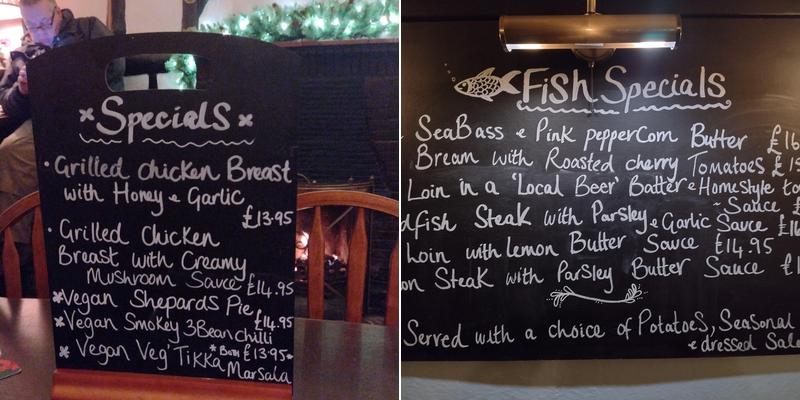 *Specials*
• Grilled chicken Breast
with Honey & Garlic
£13.95
• Grilled Chicken
Breast with Creamy
Mushroom Sauce £14.95
*Vegan Shepards Pie £14.95
*Vegan Smokey 3Bean chilli
* Vegan Veg' Tikka *Both £13.95*
Marsala
Fish Specials
SeaBass & Pink pepperCorn Butter
Bream with Roasted cherry Tomatoes
Loin in a 'Local Beer' Batter & Homestyle
Sauce
Steak with Parsley & Garlic Sauce
Loin with lemon Butter Sauce £14.95
Steak with Parsley Butter Sauce
Served with a choice of Potatoes, Seasonal
& dressed